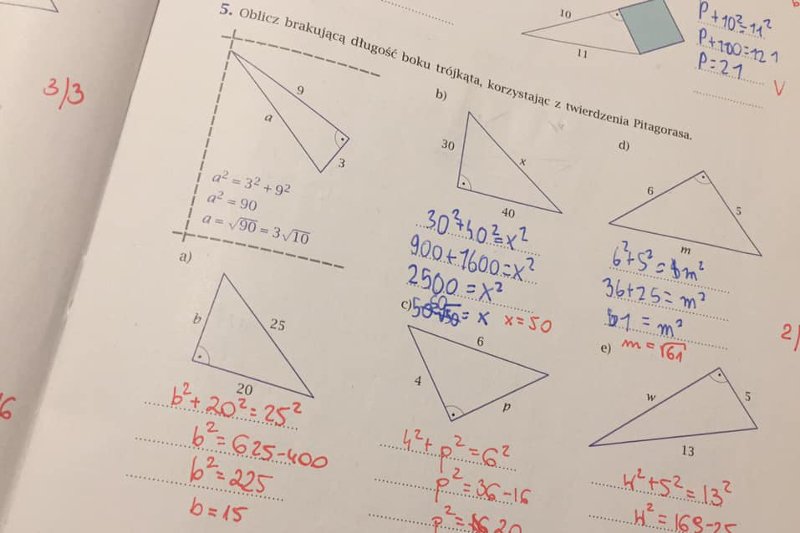 10
11
P+10²=11²
P+100=121
P=21
V
3/3
5. Oblicz brakującą długość boku trójkąta, korzystając z twierdzenia Pitagorasa.
9
a
3
a² = 3² + 9²
a² = 90
a = √90 = 3√10
b)
30
x
40
30²+40²=x²
900+1600=x²
2500=x²
= x x=50
d)
6
5
m
6²+5²=m²
36+25=m²
61=m²
m=√61
2/
a)
b
25
20
b²+20²=25²
b²=625-400
b²=225
b=15
6
c)
6
4
p
4²+p²=6²
p²=36-16
p²=20
e)
w
5
13
w²+5²=13²
w²=169-25